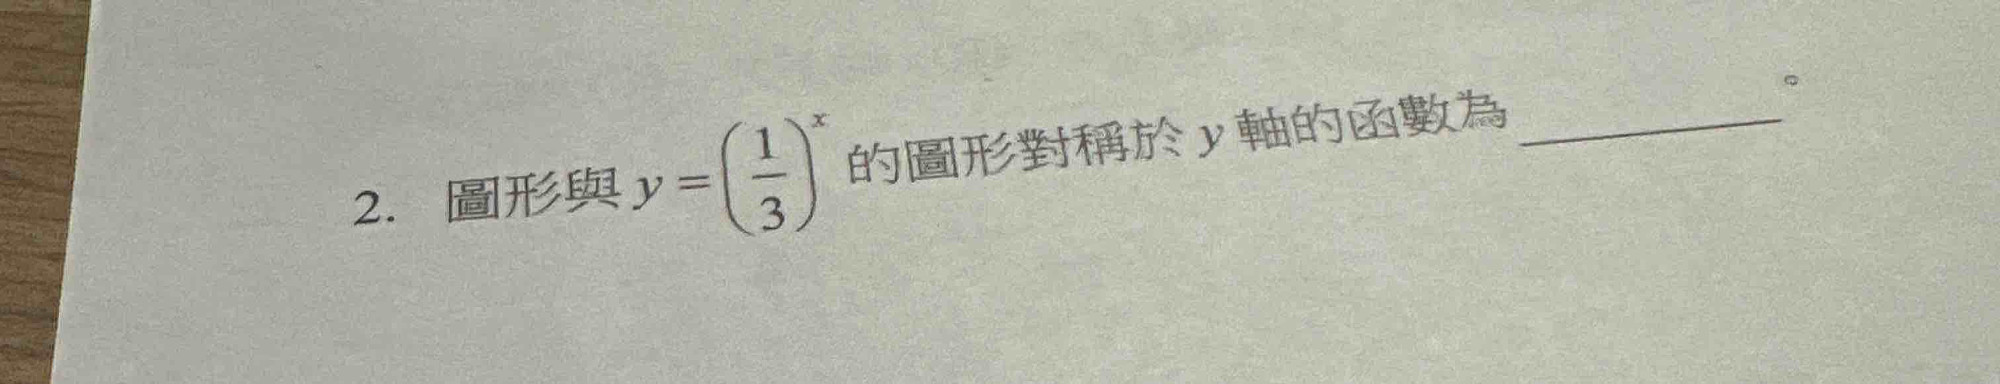 2. 圖形與 y = (1/3)^x 的圖形對稱於 y 軸的函數為________。